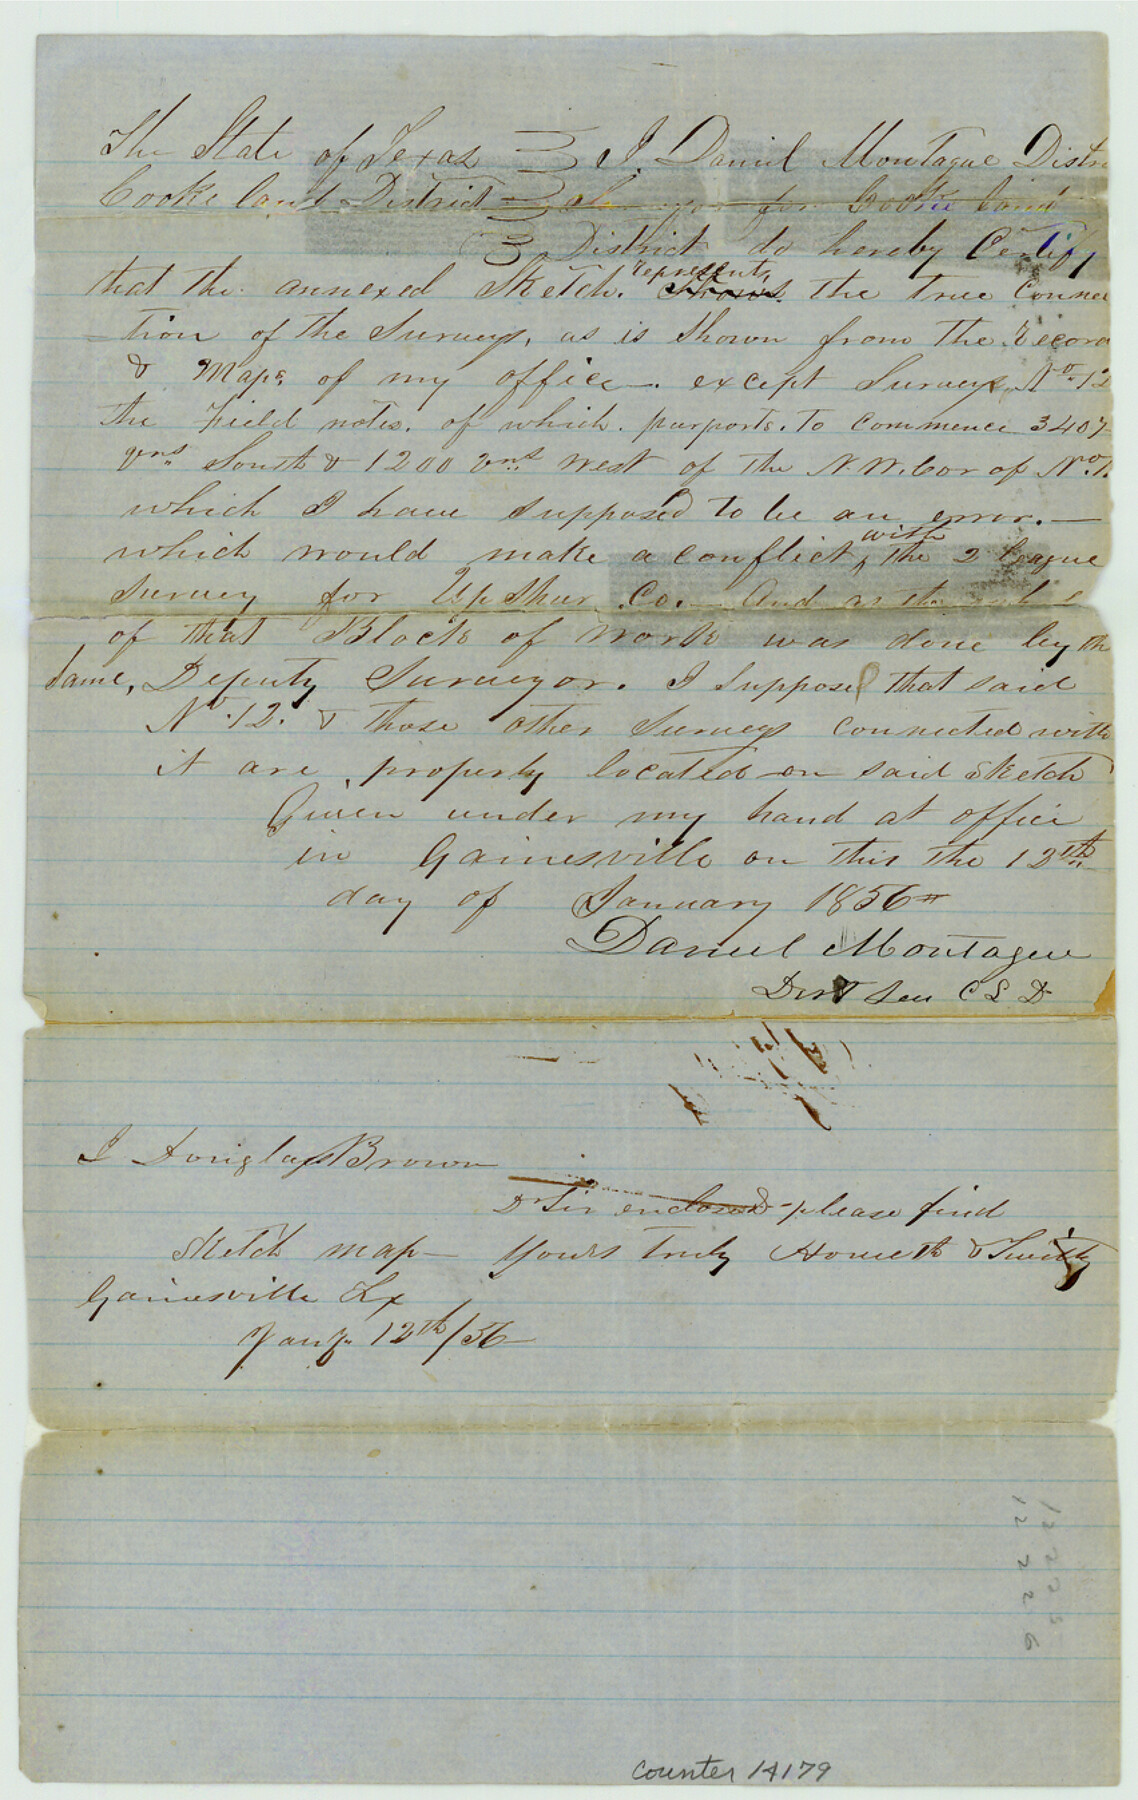 The State of Texas I Daniel Montague Distri
Cooke Land District for Cooke Land
District do hereby Certify
that the annexed Sketch. represents Shows the true Connec
tion of the Surveys, as is Shown from the record
& Maps, of my office. except Surveys No. 12
the Field notes. of which. purports. to commence 3407
vrs South & 1200 vrs West of the N.W. Cor of No.
which I have supposed to be an error.
which would make a conflict, with the 2 league
survey for Upshur Co. And
of that Block of work was done by th
same, Deputy Surveyor. I suppose that said
No. 12. & those other surveys connected with
it are, properly located on said sketch
Given under my hand at office
in Gainesville on this the 12th
day of January 1856
Daniel Montague
Dist Sur C L D
I Douglass Brown
Dr Sir enclosed please find
Sketch map Yours truly Howeth &
Gainesville Tx
Jany. 12th/56
12226
Counter 14179